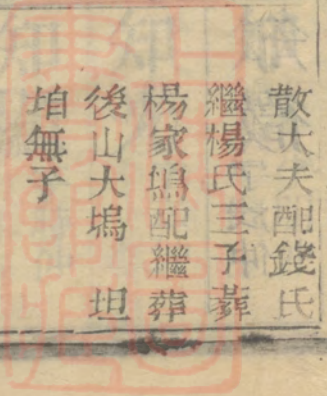 散大夫配錢氏
繼楊氏三子葬
楊家塢配繼葬
後山大塢　坦
垍無子